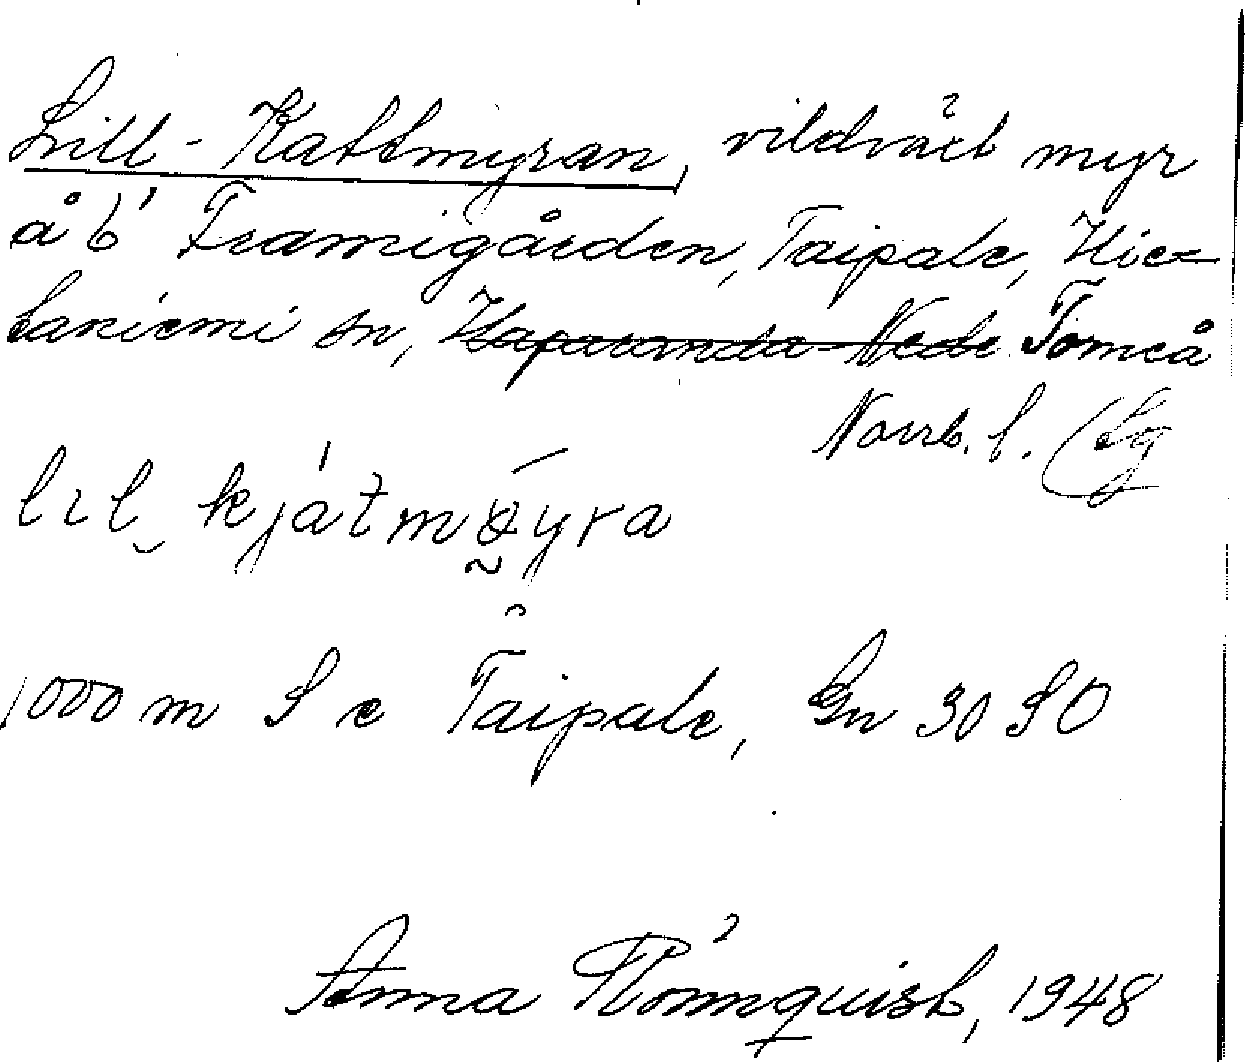 Lill-Kattmyran, vildvält myr
å b' Framigården, Taipale, Hie=
taniemi sn, Haparanda-Neder Torneå
Norrb. l.
lıl kjátmýra
1000 m S e Taipale, Gn 30 SO
Anna Rönnquist, 1948